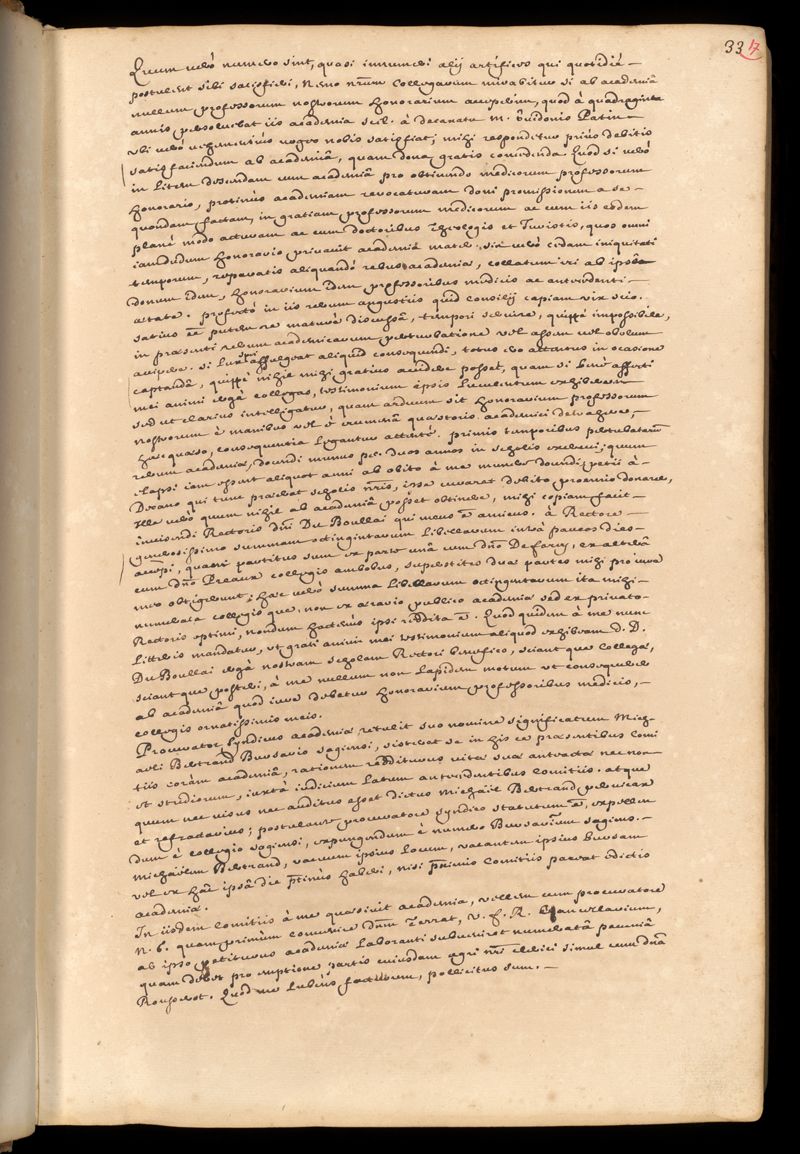 33 17
Quum verò numero sint, quasi innumeri alij artifices qui quotidiè
postulent sibi satisfieri, nemo nrûm collegarum mirabitur si ab academiâ
nullum professorum nostrorum honorarium acceperim, quod à quadraginta
annis persoluebat iis academia scil. à decanatu m. Guidonis Patin
ubi verò urgentius urgeo nobis satisfiat; mihi respondetur prius debitis
satisfaciendum ab academiâ, quam dona gratis concedenda. Quod si verò
in litem descendam cum academiâ pro obtinendo medicorum professorum
honorario, protinus academiam revocaturam doni promissionem a se
quondam factam, in gratiam professorum medicorum ac cum iis eodem
planè modo acturam ac cum doctoribus Theologis et Juristis, quos omni
iamdudum honorario privavit academia mater. sin verò cedam iniquitati
temporum, reparatis aliquandò rebus academia, collatum iri ab ipsâ
donum idem, honorarium idem professoribus medicis ac antecedenti
ætate. profectò in iis rerum angustiis quid consilij capiam vix scio.
satius e͞e putem re maturè discussâ, tempori servire, quippè impossibile,
in præsenti rerum academicarum perturbatione vel assem vel obolum
accipere. si lux spei affulgeat aliquid consequendi, totus ero attentus in occasione
captandâ, quippè nihil mihi gratius accidere posset, quam si benè affecti
mei animi ergà collegas, testimonium ipsis luculentum exhiberem
sed ut clarius intelligatur, quam arduum sit honorarium professorum
nostrorum è manibus vel è crumenâ quæstoris academici detrahere,
hæc quæso, consequentia legantur attentè. primis temporibus perturbatarum
rerum academiæ, docendi munus per duos annos in scholis exercui; quum
elapsi iam essent aliquot anni ab obito à me munere docendi, petii à
Decano qui tunc præerat scholis nris, isse curaret debito præmio donare,
ille verò quum nihil ab academiâ posset obtinere, mihi copiam facit
inveniendi Rectoris dni Du Boullai qui meus e͞ amicus. à Rectore
generosissimo summam octingintarum libellarum intrà paucos dies
accepi, quam partitus sum ex parte unâ cum dno De farcy, ex alterâ
cum dno Preaux collegis ambobus, superstites duæ partes mihi pro iure
meo obtigerunt; hæc verò summa libellarum octingintarum ita mihi
numerata collegisque, non ex ærario publico academiæ sed ex privato
Rectoris optimi, nondum hactenus ipsi reddita e͞. Quod quidem à me nunc
litteris mandatur, ut grati animi mei testimonium aliquod exhibeam D. D.
Du Boullai ergà nostram scholam Rectori benefico, sciant que collegæ,
sciant que posteri, à me nullum non lapidem motum ut consequerer
ab academiâ quod iure debetur honorarium professoribus medicis,
collegis ornatissimis meis.
Procurator Syndicus academiæ retulit suo nomine significatum Mich-
aeli Beltrand Bursario sagiensi, sisteret se in his ce præsentibus comi
tiis coràm academiâ, rationem redditurus vitæ suæ anteactæ nec non
et studiorum, iuxtà iudicium latum antecedentibus comitiis. atque
quum nec visus nec auditus esset dictus Michaël Beltrand pelluceax
et refractarius; postulante procuratore syndico statutum e͞, expellen
dum è collegio sagiensi, expungendum è numero Bursariorum sagiens.
michaëlem Beltrand, vacuum ipsius locum, vacantem ipsius bursam
vel ex hâc ipsâ die prtinus haberi, nisi primis comitiis pareat edicto
academiæ.
In iisdem comitiis à me quæsivit academia, vellem cum procuratore
n. G. quamprimùm convenire dnum Terrat, v. f. R. Cancellarium,
ab ipso petiturus academiæ laboranti subveniret numeratâ pecuniâ
quam debet pro emptione partis cuiusdam agri nri clerici simul cum dnâ
Rousserot. Quod me lubens facturum, pollicitus sum.